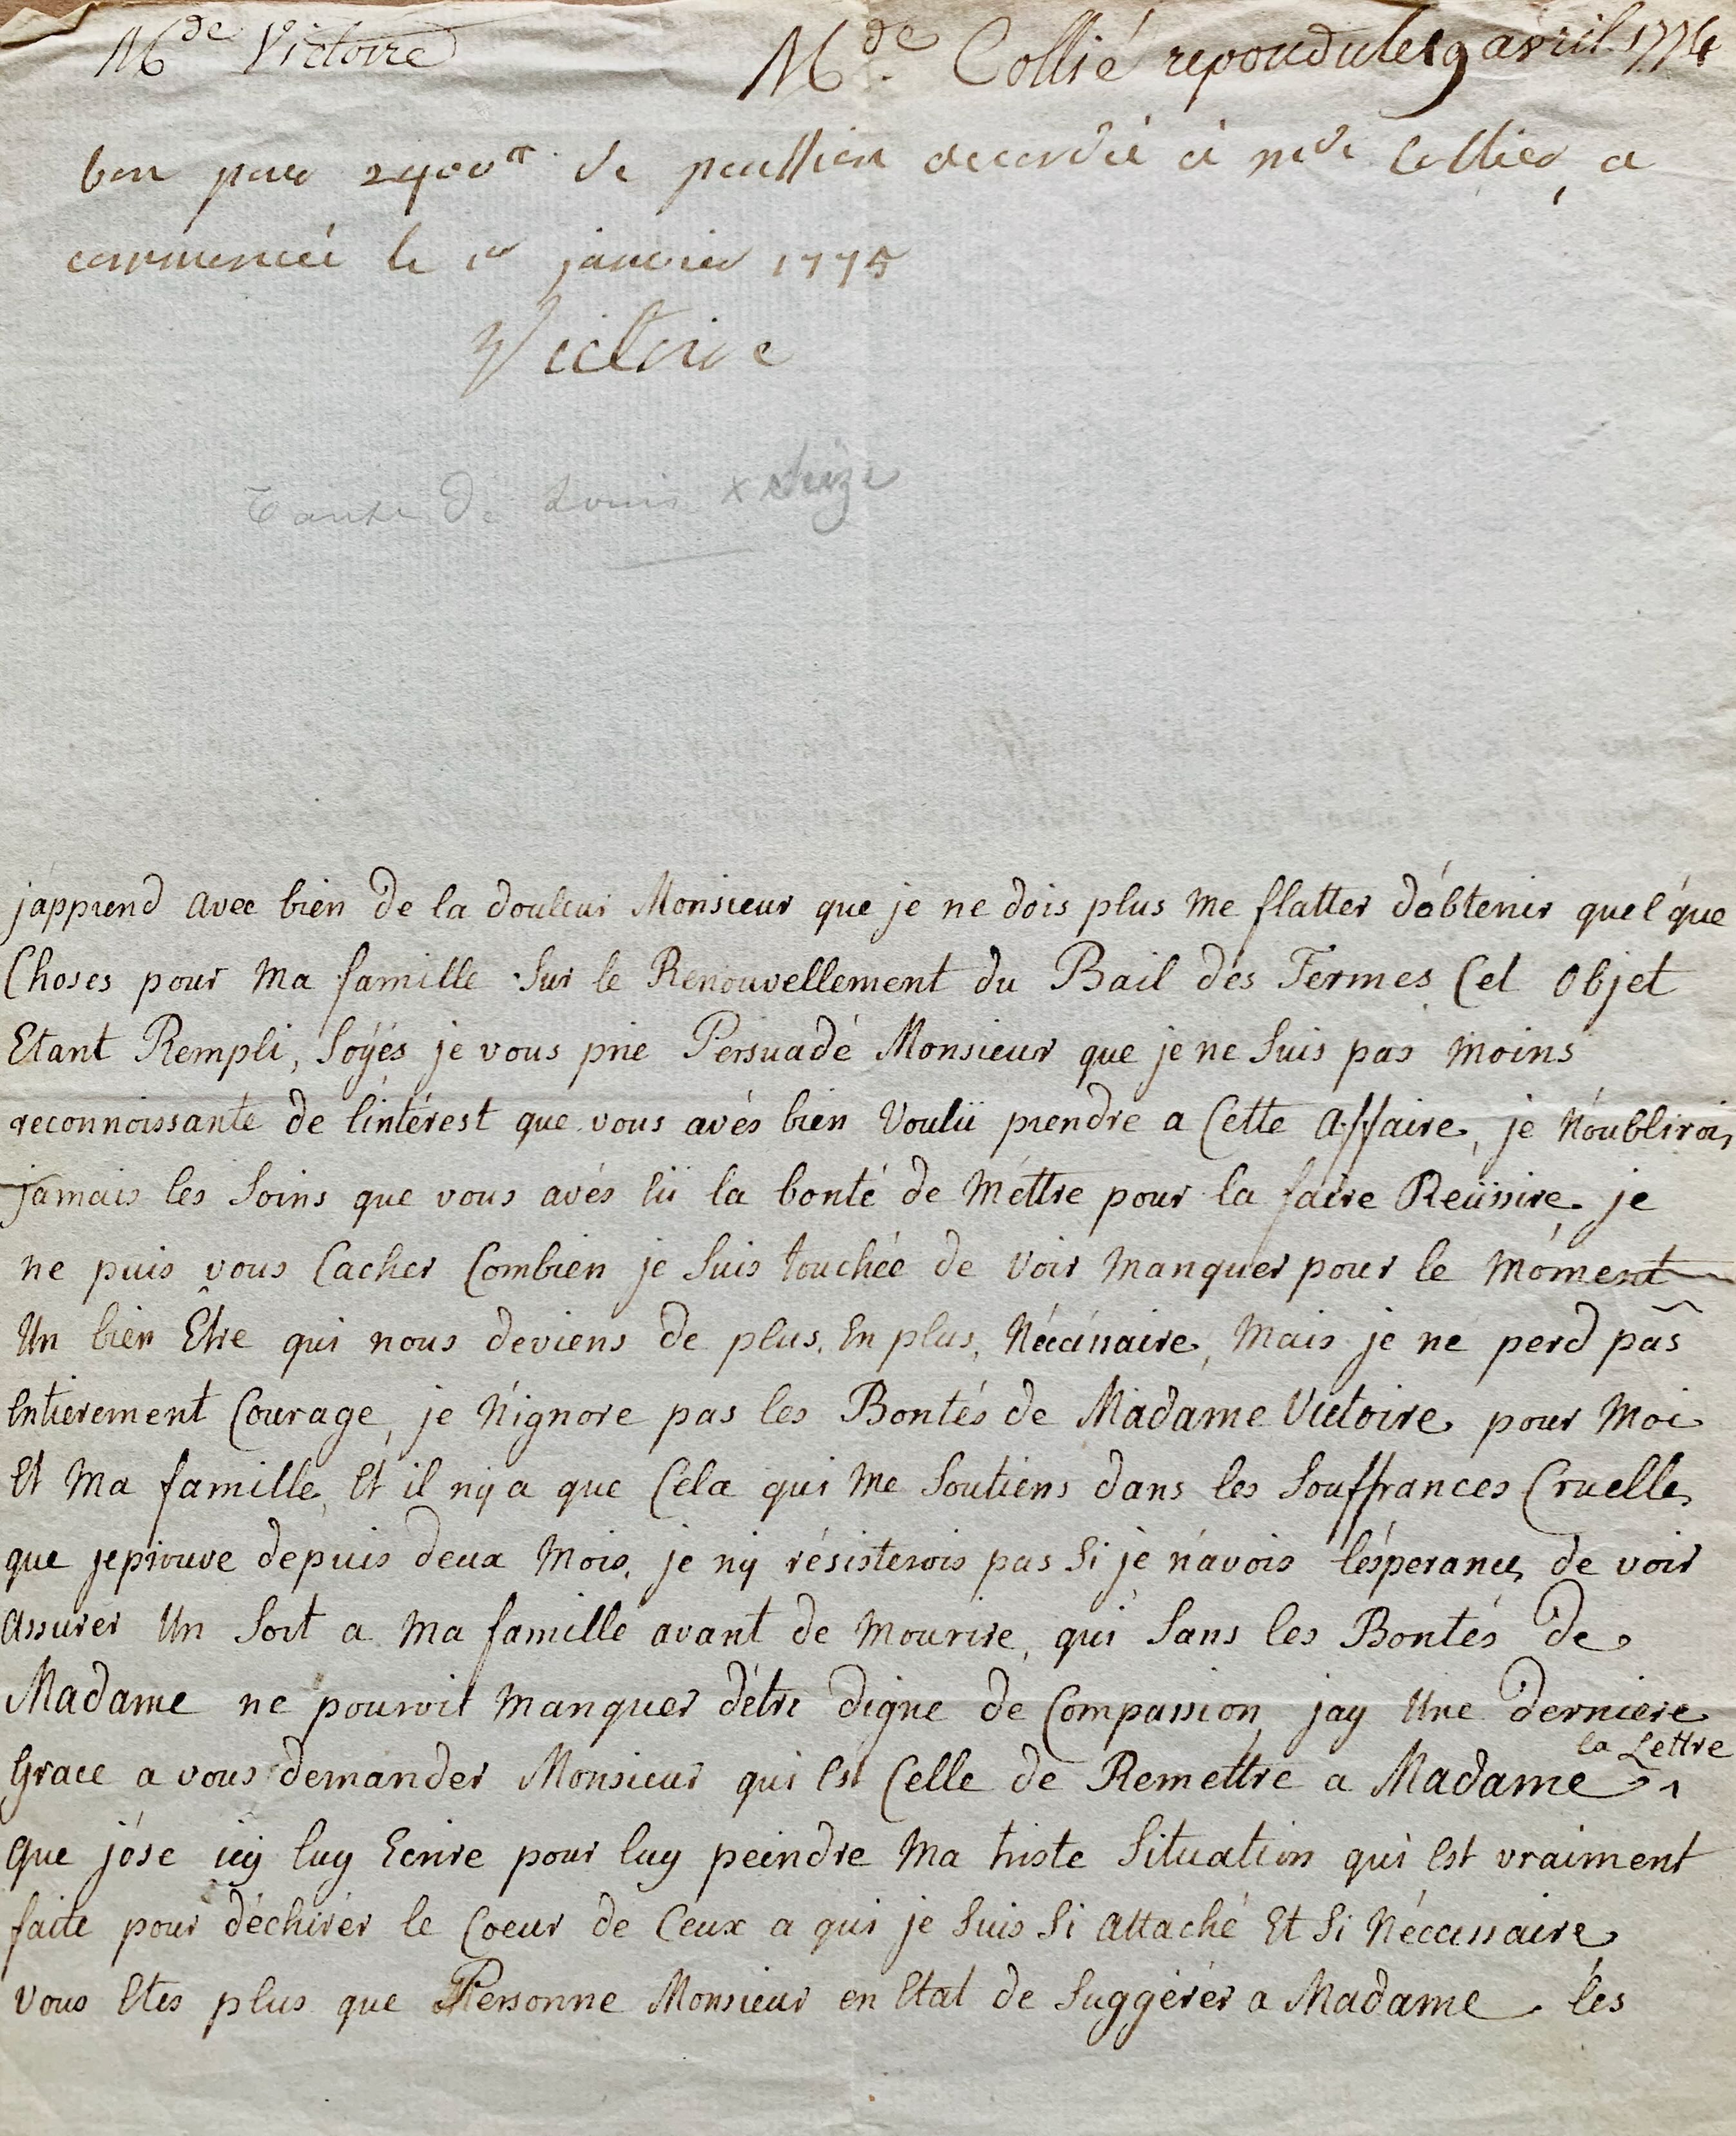 Mde Victoire
Mde. Collié repondu le 19 avril 1774
bon pour 2400tt de penssion accordée à mde Collier, a
commencée le 1er janvier 1775
Victoire
Tante de Louis x Seize
j'apprend avec bien de la douleur Monsieur que je ne dois plus me flatter d'óbtenir quel'que
Choses pour Ma famille Sur le Renouvellement du Bail dés Fermes Cet Objet
Etant Rempli, Soÿés je vous prie Persuadé Monsieur que je ne Suis pas Moins
reconnoissante de l'intérest que vous avés bien Voulü prendre a Cette Affaire, je N'oublirois
jamais les Soins que vous avés Eü la bonté de Méttre pour la faire Reüssire. je
ne puis vous Cacher Combien je Suis touchée de Voir Manquer pour le Moment
Un bien Être qui nous deviens de plus, En plus, Nécéssaire, Mais je ne perd pas
Entierement Courage, je N'ignore pas les Bontés de Madame Victoire pour Moi
Et Ma famille, Et il nÿ a que Cela qui Me Soutiens dans les Souffrances Cruelles
que jeprouve dépuis deux Mois, je nÿ résisterois pas Si je n'avois l'ésperance de voir
Assurer Un Sort a Ma famille avant de Mourire, qui Sans les Bontés de
Madame ne pouroit Manquer d'étre digne de Compassion, jay Une derniere
la Lettre
Grace a vous demander Monsieur qui Est Celle de Remettre a Madame ^
Que j'óse icÿ luy Ecrire pour luy peindre Ma triste Situation qui Est vraiment
faite pour déchirér le Coeur de Ceux a qui je Suis Si Attaché Et Si Nécessaire
Vous Etes plus que Personne Monsieur en Etat de Suggérér a Madame lés